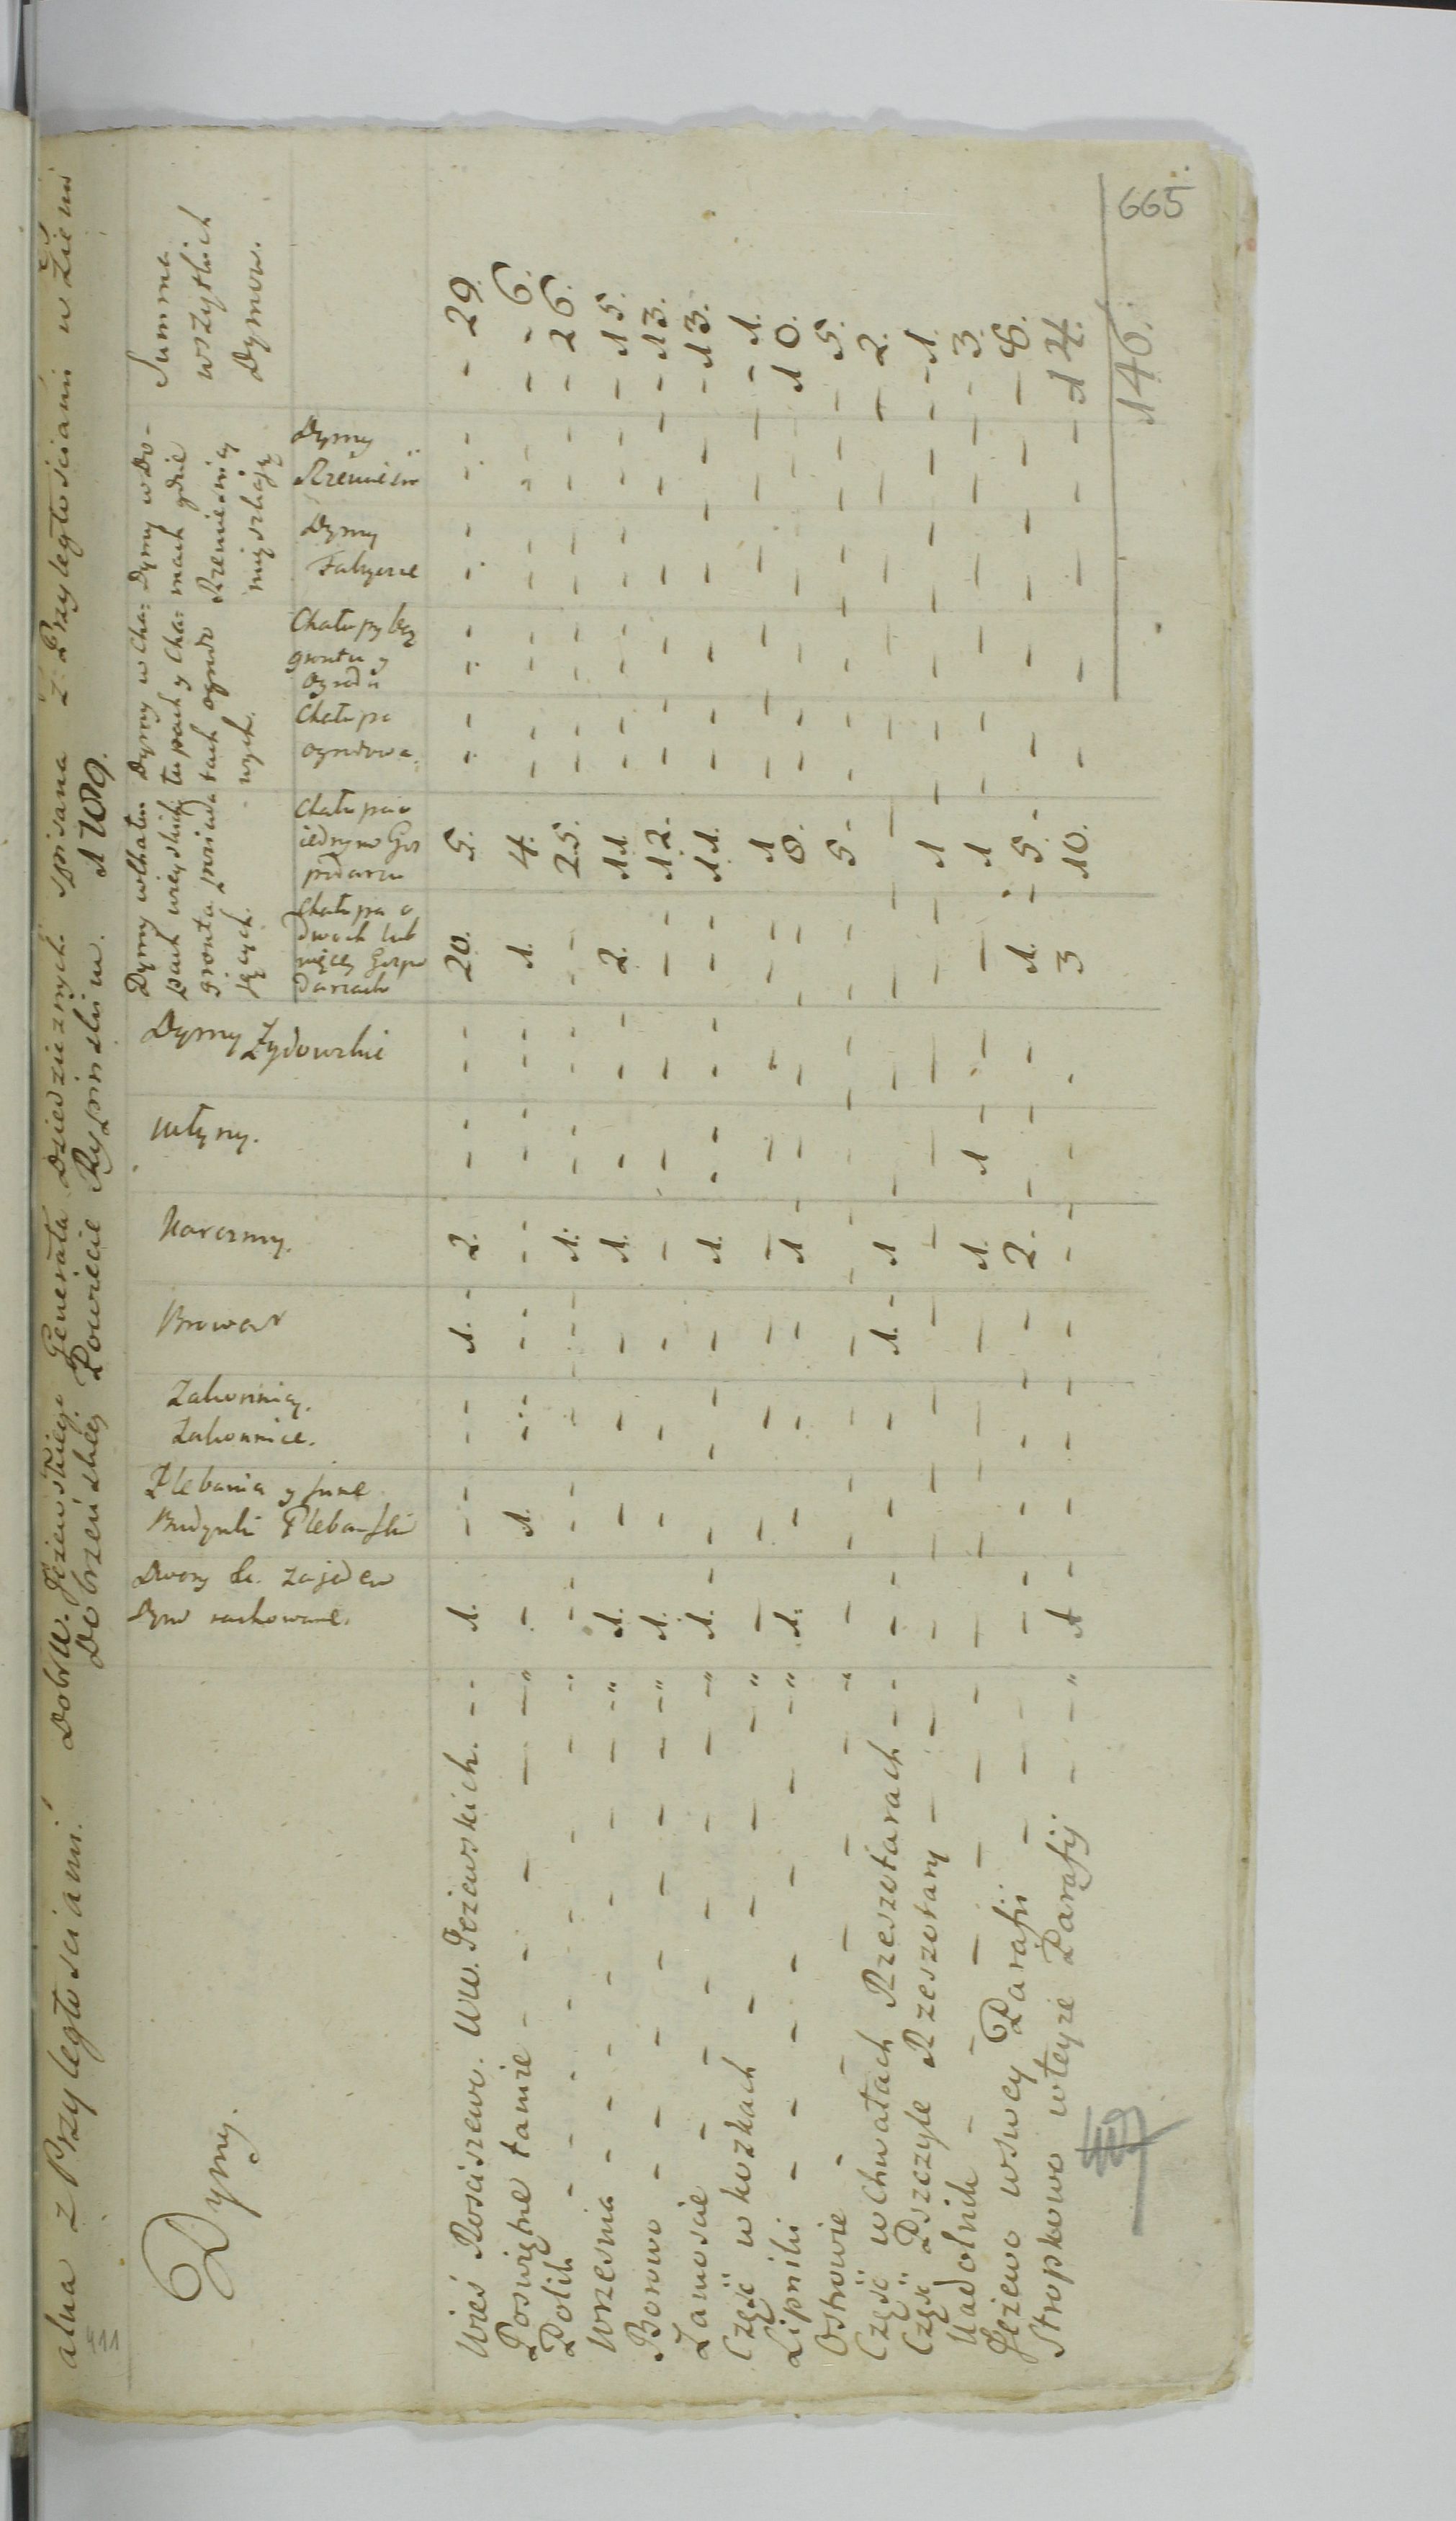 alna z Przyległosciami. Dobr W. Jeżewskiego Generała Dziedzicznych spisana z Przyległosciami w Ziemi
Dobrzeńskiey Powiecie Rypinskim. 1789.
Dymy.
Dwory &c. za jeden Dym rachowane.
Plebania y Inne Budynki Plebanskie
Zakonnicy. Zakonnice.
Browar
Karczmy.
Młyny.
Dymy Żydowskie
Dymy w Chałupach wieyskich gronta posiadaiących.
Chałupa o dwoch lub więcey Gospodarzach
Chałupa o iednym Gospodarzu
Dymy w Chałupach y Chatach ogrodowych.
Chałupa ogrodowa.
Chałupy bez grontu y ogrodu
Dymy w Domach gdzie Rzemieslnicy mięszkaią
Dymy Fabryczne
Dymy Rzemieśln
Summa wszystkich Dymow.
Wieś Rosciszewo. WW. Jeżewskich. - - 1. - - - - 1. - 2. - - - - 20. 5. - - - - - - - - - 29.
Poswiętne tamże - - - - 1. - - - - - - - - - 1. 4. - - - - - - - - - - 6.
Polik - - - - - - - - 1. - - - - - - 25. - - - - - - - - - 26.
Wrzesnia - - - 1. - - - 1. - - 2. 11. - - - - - - - - 15.
Borowo - - - 1. - - - - - - - 12. - - - - - - - - 13.
Zamoscie - - - 1. - - - 1. - - - 11. - - - - - - - 13.
Część w kozkach - - - - - - - - - - - 1 - - - - - - 1.
Lipniki - - - 1. - - - 1 - - - 8. - - - - - - 10.
Ostrowie - - - - - - - - - - - 5 - - - - - - 5.
Część w Chwałach Rzeszotarach - - - - - 1. - 1 - - - - - - - - - 2.
Część Pszczyle Rzeszotary - - - - - - - - - - 1 - - - - - 1.
Nadolnik - - - - - - - 1. 1 - - 1 - - - - - 3.
Jeżewo w swey Parafii - - - - - - 2. - - 1. 5. - - - - - 8.
Stropkowo w teyże Parafij - - 1 - - - - - - 3 10. - - - - - 14.
146.
665
411